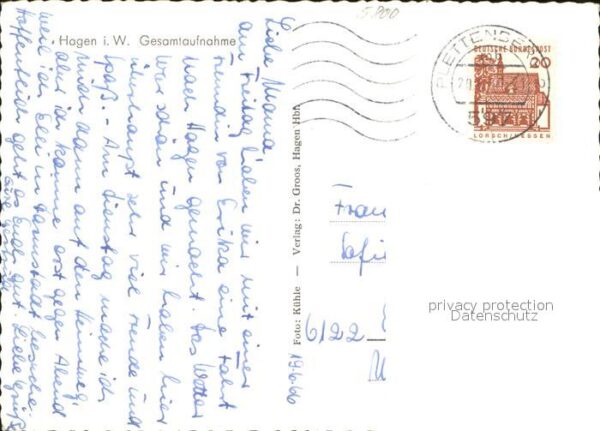 15.800
Hagen i. W. Gesamtaufnahme
PLETTENBERG
597
DEUTSCHE BUNDESPOST
20
LORSCH/HESSEN
Liebe Mama!
am Freitag haben wir mit einer
Freundin von Erika eine Fahrt
nach Hagen gemacht. Das Wetter
war schön und wir haben hier
überhaupt sehr viel Freude und
Spaß. - Am Dienstag mache ich
mich dann auf den Heimweg,
aber ich komme erst gegen Abend
weil ich Elle in Darmstadt besuche.
Hoffentlich geht es Euch gut. Liebe Grüße
Foto: Kühle — Verlag: Dr. Groos, Hagen Hbf.
19666
Frau
Sofie
6122
privacy protection
Datenschutz